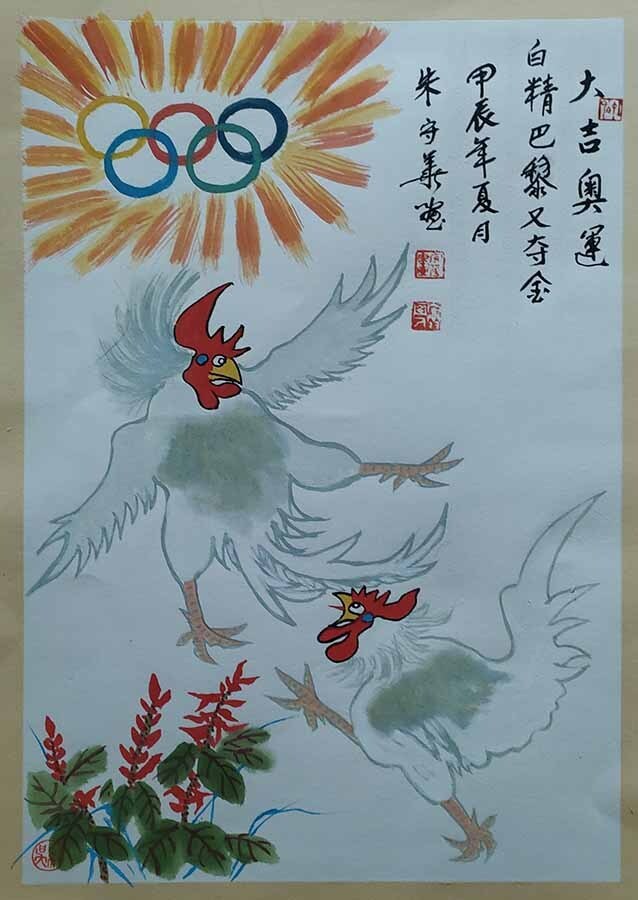 大吉奥運
白精巴黎又夺金
甲辰年夏月
朱守華画